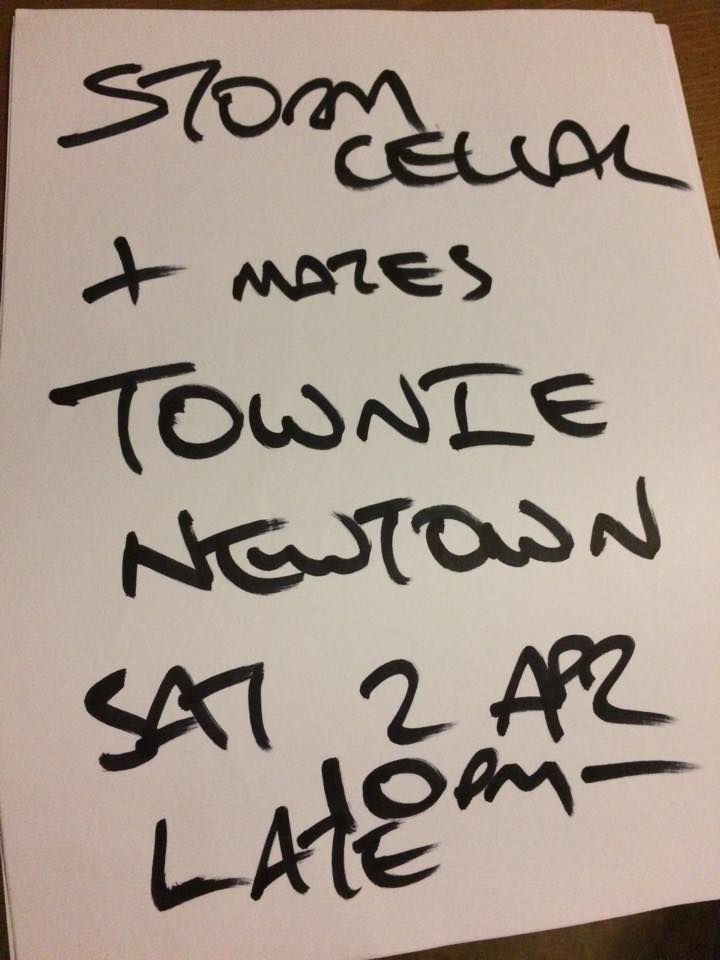 STORM
CELLAR
+ MATES
TOWNIE
NEWTOWN
SAT 2 APR
10PM—
LATE